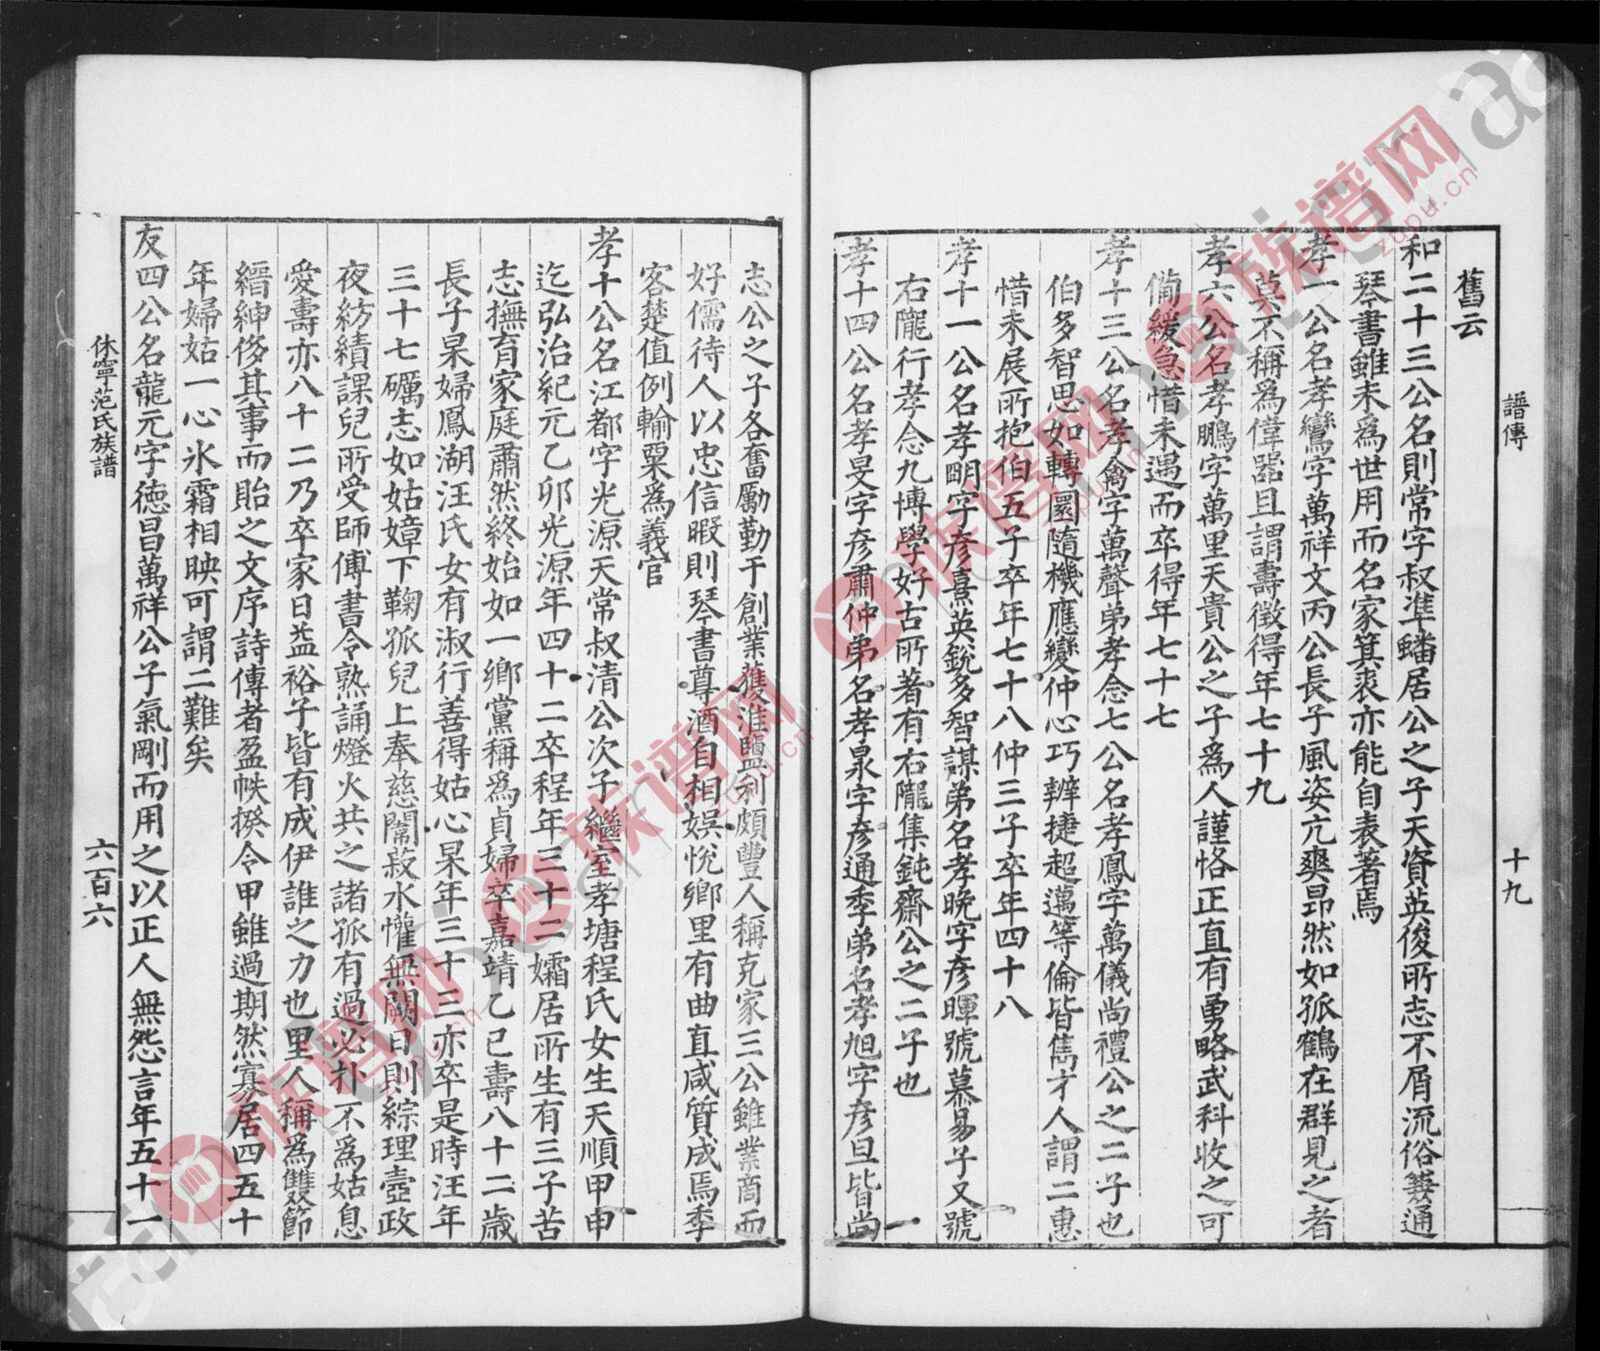 譜傳
十九
舊云
和二十三公名則常字叔準蟠居公之子天資英俊所志不屑流俗兼通
琴書雖未為世用而名家箕裘亦能自表著焉
孝一公名孝鸞字萬祥文丙公長子風姿亢爽昂然如孤鶴在群見之者
莫不稱為偉器且謂壽徵得年七十九
孝六公名孝鵬字萬里天貴公之子為人謹恪正直有勇略武科收之可
備緩急惜未遇而卒得年七十七
孝十三公名孝禽字萬聲弟孝念七公名孝鳳字萬儀尚禮公之二子也
伯多智思如轉圜隨機應變仲心巧辨捷超邁等倫皆雋才人謂二惠
惜未展所抱伯五子卒年七十八仲三子卒年四十八
孝十一公名孝明字彥熹英銳多智謀弟名孝晚字彥暉號慕易子又號
右隴行孝念九博學好古所著有右隴集鈍齋公之二子也
孝十四公名孝旻字彥肅仲弟名孝泉字彥通季弟名孝旭字彥旦皆尚
志公之子各奮勵勤干創業蓰淮鹽利頗豐人稱克家三公雖業商而
好儒待人以忠信暇則琴書尊酒自相娛悅鄉里有曲直咸質成焉季
客楚值例輸粟為義官
孝十公名江都字光源天常叔清公次子繼室孝塘程氏女生天順甲申
迄弘治紀元乙卯光源年四十二卒程年三十二孀居所生有三子苦
志撫育家庭肅然終始如一鄉黨稱為貞婦卒嘉靖乙巳壽八十二歲
長子杲婦鳳湖汪氏女有淑行善得姑心杲年三十三亦卒是時汪年
三十七礪志如姑嫜下鞠孤兒上奉慈闈菽水懽無闕日則綜理壼政
夜紡績課兒所受師傅書令熟誦燈火共之諸孤有過必扑不為姑息
愛壽亦八十二乃卒家日益裕子皆有成伊誰之力也里人稱為雙節
縉紳侈其事而貽之文序詩傳者盈帙揆令甲雖過期然寡居四五十
年婦姑一心氷霜相映可謂二難矣
友四公名龍元字德昌萬祥公子氣剛而用之以正人無怨言年五十一
休寧范氏族譜
六百六
族谱网
zupu.cn